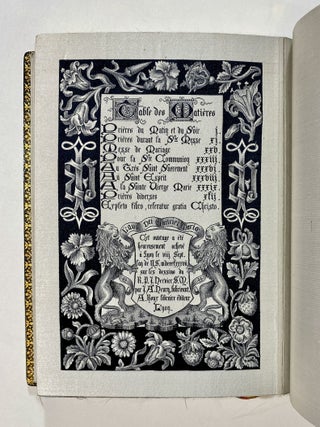 Table des Matières
Prières du Matin et du Soir j.
Prières durant la Ste Messe xj.
Messe de Mariage xxv.
Pour la Ste Communion xxxiii.
Au Très Saint Sacrement xxxvj.
Au Saint Esprit xxxviij.
A la Sainte Vierge Marie xxxix.
Prières diverses xlij.
Expleto felix referatur gratia Christo.
Cet ouvrage a été
heureusement achevé
à Lyon le
sur les dessins du
R. P. J. Hervier S. M.
par J. A. Henry, fabricant.
A. Roux libraire éditeur
Lyon.